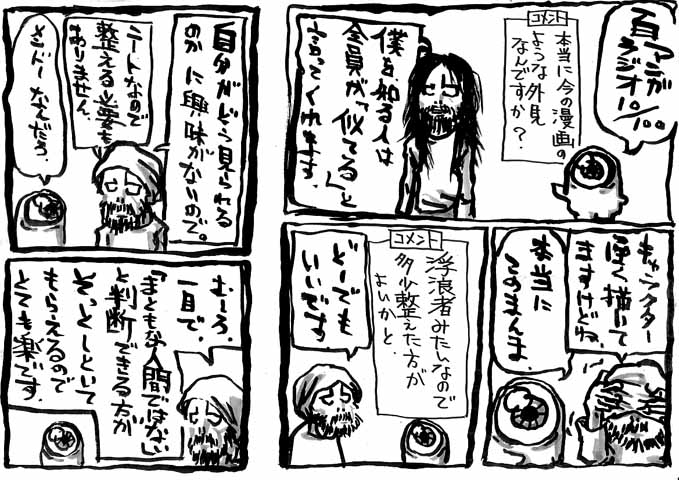 百マンガ
ラジオ
10/100
コメント
本当に今の漫画の
ような外見
なんですか?
僕を知る人は
全員が「似てる」と
言ってくれます。
キャラクター
ぽく描いて
ますけどね、
本当に
このまんま。
コメント
浮浪者みたいなので
多少整えた方が
よいかと、
どーでも
いいです。
自分がどう見られる
のかに興味がないので。
ニートなので
整える必要も
ありません。
メンドーなんだろ。
むしろ、
一目で、
「まともな人間ではない」
と判断できる方が
そっとしといて
もらえるので
とても楽です。